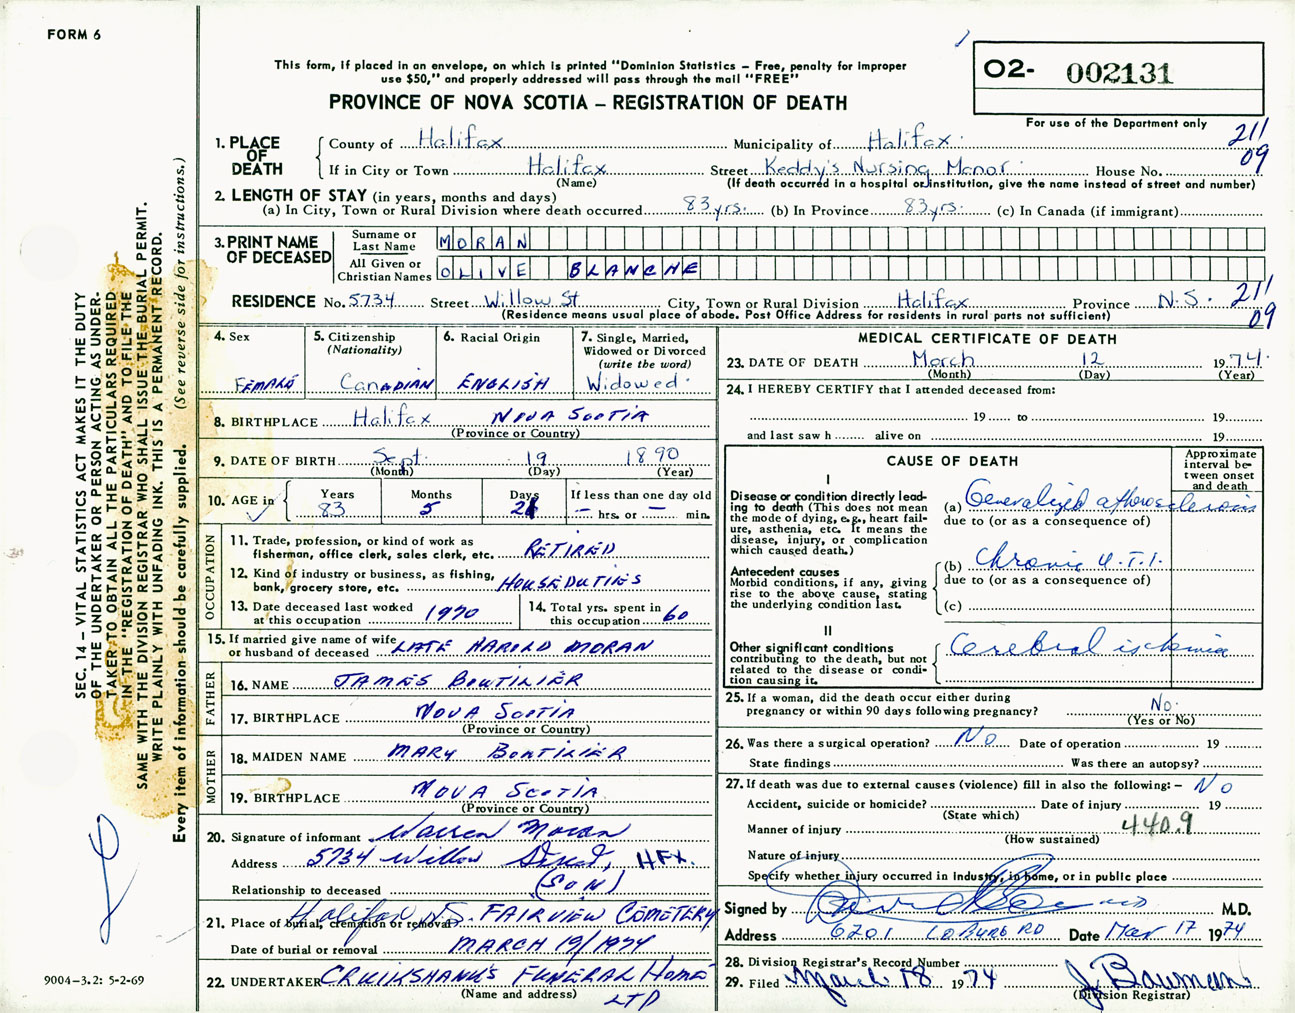 FORM 6
This form, if placed in an envelope, on which is printed "Dominion Statistics – Free, penalty for improper
use $50," and properly addressed will pass through the mail "FREE"
PROVINCE OF NOVA SCOTIA – REGISTRATION OF DEATH
O2- 002131
For use of the Department only
211
09
1. PLACE OF DEATH
County of Halifax Municipality of Halifax
If in City or Town Halifax Street Keddy's Nursing Manor House No.
(Name) (If death occurred in a hospital or institution, give the name instead of street and number)
2. LENGTH OF STAY (in years, months and days)
(a) In City, Town or Rural Division where death occurred 83 yrs. (b) In Province 83 yrs. (c) In Canada (if immigrant)
3. PRINT NAME OF DECEASED
Surname or Last Name MORAN
All Given or Christian Names OLIVE BLANCHE
RESIDENCE No. 5734 Street Willow St City, Town or Rural Division Halifax Province N.S. 211
09
(Residence means usual place of abode. Post Office Address for residents in rural parts not sufficient)
4. Sex
FEMALE
5. Citizenship
(Nationality)
Canadian
6. Racial Origin
ENGLISH
7. Single, Married,
Widowed or Divorced
(write the word)
Widowed
8. BIRTHPLACE Halifax NOVA SCOTIA
(Province or Country)
9. DATE OF BIRTH Sept. 19 1890
(Month) (Day) (Year)
10. AGE in
Years 83
Months 5
Days
If less than one day old
– hrs. or – min.
OCCUPATION
11. Trade, profession, or kind of work as
fisherman, office clerk, sales clerk, etc. RETIRED
12. Kind of industry or business, as fishing,
bank, grocery store, etc. HOUSEDUTIES
13. Date deceased last worked
at this occupation 1970
14. Total yrs. spent in
this occupation 60
15. If married give name of wife
or husband of deceased LATE HAROLD MORAN
FATHER
16. NAME JAMES BOUTILIER
17. BIRTHPLACE NOVA SCOTIA
(Province or Country)
MOTHER
18. MAIDEN NAME MARY BOUTILIER
19. BIRTHPLACE NOVA SCOTIA
(Province or Country)
20. Signature of informant Warren Moran
Address 5734 Willow Street, HFX.
Relationship to deceased (SON)
21. Place of burial, cremation or removal Halifax N.S. FAIRVIEW CEMETERY
Date of burial or removal MARCH 19/1974
22. UNDERTAKER CRUIKSHANK'S FUNERAL HOME
(Name and address) LTD
MEDICAL CERTIFICATE OF DEATH
23. DATE OF DEATH March 12 1974
(Month) (Day) (Year)
24. I HEREBY CERTIFY that I attended deceased from:
19 to 19
and last saw h alive on 19
CAUSE OF DEATH
Approximate
interval be-
tween onset
and death
I
Disease or condition directly lead-
ing to death (This does not mean
the mode of dying, e.g., heart fail-
ure, asthenia, etc. It means the
disease, injury, or complication
which caused death.)
(a) Generalized atherosclerosis
due to (or as a consequence of)
Antecedent causes
Morbid conditions, if any, giving
rise to the above cause, stating
the underlying condition last.
(b) Chronic U.T.I.
due to (or as a consequence of)
(c)
II
Other significant conditions
contributing to the death, but not
related to the disease or condi-
tion causing it.
Cerebral ischemia
25. If a woman, did the death occur either during
pregnancy or within 90 days following pregnancy? No.
(Yes or No)
26. Was there a surgical operation? No Date of operation 19
State findings Was there an autopsy?
27. If death was due to external causes (violence) fill in also the following: – No
Accident, suicide or homicide? Date of injury 19
(State which)
Manner of injury 440.9
(How sustained)
Nature of injury
Specify whether injury occurred in industry, in home, or in public place
Signed by M.D.
Address 6201 Date Mar 17 1974
28. Division Registrar's Record Number
29. Filed March 18 1974 J. Bowman
(Division Registrar)
SEC. 14 – VITAL STATISTICS ACT MAKES IT THE DUTY
OF THE UNDERTAKER OR PERSON ACTING AS UNDER-
TAKER TO OBTAIN ALL THE PARTICULARS REQUIRED
IN THE "REGISTRATION OF DEATH" AND TO FILE THE
SAME WITH THE DIVISION REGISTRAR WHO SHALL ISSUE THE BURIAL PERMIT.
WRITE PLAINLY WITH UNFADING INK. THIS IS A PERMANENT RECORD.
Every item of information should be carefully supplied. (See reverse side for instructions.)
9004–3.2: 5-2-69